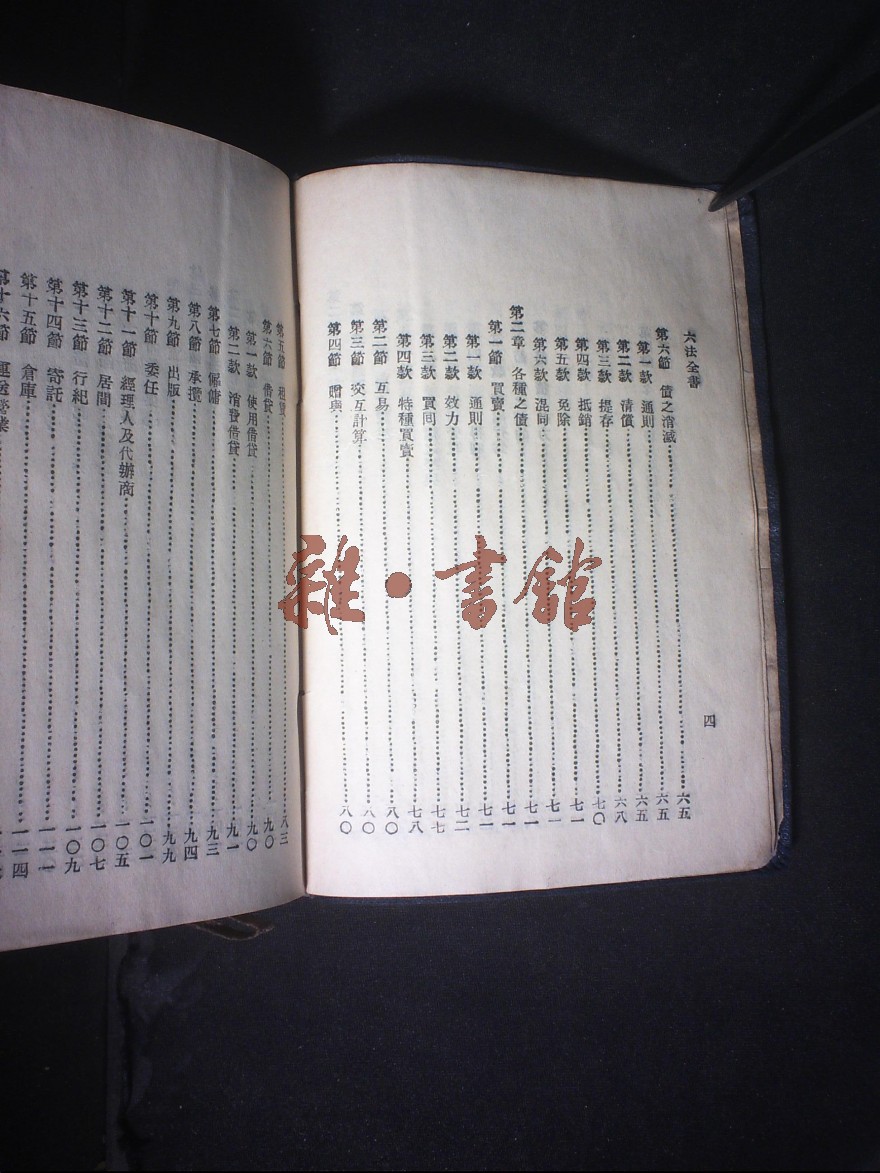 六法全書
四
第六節 債之消滅 六五
第一款 通則 六五
第二款 清償 六八
第三款 提存 七〇
第四款 抵銷 七一
第五款 免除 七一
第六款 混同 七一
第二章 各種之債 七一
第一節 買賣 七一
第一款 通則 七一
第二款 效力 七二
第三款 買回 七七
第四款 特種買賣 七八
第二節 互易 八〇
第三節 交互計算 八〇
第四節 贈與 八〇
第五節 租賃 八三
第六節 借貸 九〇
第一款 使用借貸 九〇
第二款 消費借貸 九一
第七節 僱傭 九三
第八節 承攬 九四
第九節 出版 九九
第十節 委任 一〇一
第十一節 經理人及代辦商 一〇五
第十二節 居間 一〇七
第十三節 行紀 一〇九
第十四節 寄託 一一一
第十五節 倉庫 一一四
第十六節 運送營業
雜·書館